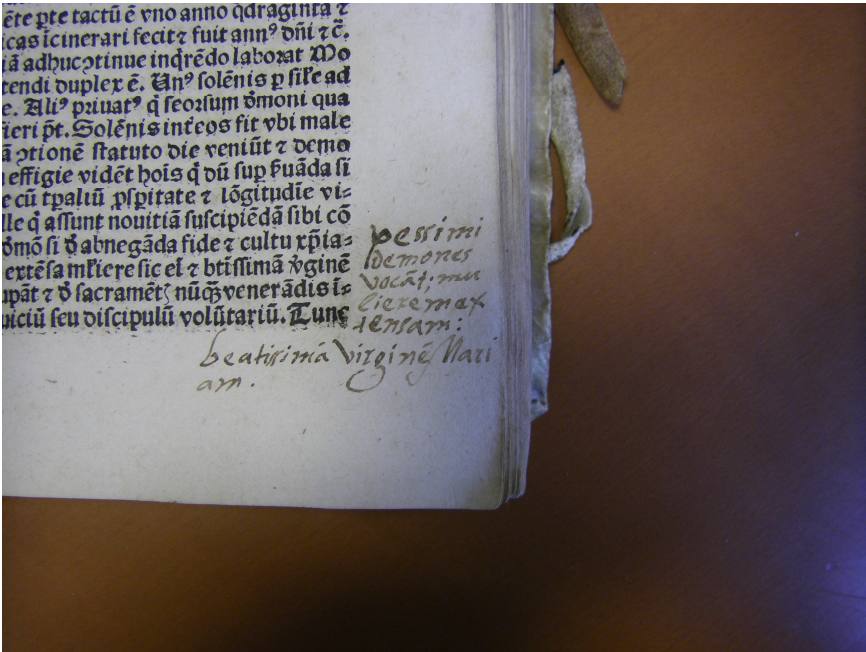 ēte ꝑte tactū ē vno anno q̄draginta ⁊
icas īcinerari fecit ⁊ fuit annꝰ dn̄i ⁊ c̄.
iā adhuc ↄtinue inqͥrēdo laborat Mo
tendi duplex ē. Unꝰ solēnis ꝑ sil'e ad
e. Aliꝰ priuatꝰ q̄ seorsum d̄moni qua
ieri pt̄. Solēnis int̄ eos fit vbi male
ā ↄtionē statuto die veniūt ⁊ demo
effigie vidēt hoīs q̄ dū suꝑ ẜuāda fi
e cū tꝑaliū ꝓsꝑitate ⁊ lōgitudīe vi-
lle q̄ assunt nouitiā suscipiēdā sibi cō
d̄mō si d̄ abnegāda fide ⁊ cultu xp̄ia-
extēsa ml'iere sic el̄ ⁊ btīssimā v̄ginē
upāt ⁊ d̄ sacramēt̄ nūqͣꝫ venerādis i-
uiciū seu discipulū volūtariū. Tunc
pessimi
demones
vocāt; mu
lierem ex
tensam:
beatisimā Virginē Mari
am.